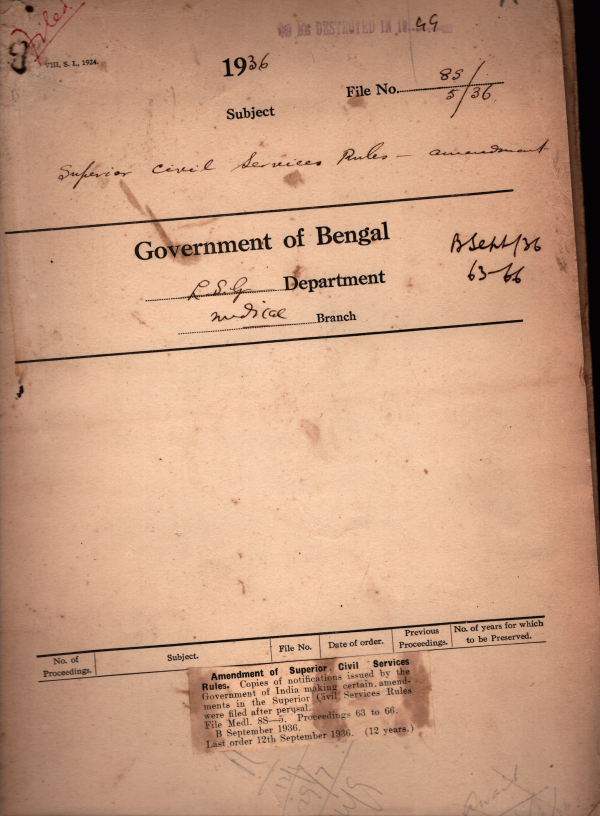 Filed
VIII, S. I., 1924.
TO BE DESTROYED IN 1949
1936
File No. 8S/5/36
Subject
Superior Civil Services Rules – amendment
Government of Bengal
L.S.G Department
Medical Branch
B Sept/36
63–66
No. of Proceedings.
Subject.
File No.
Date of order.
Previous Proceedings.
No. of years for which to be Preserved.
Amendment of Superior Civil Services
Rules. Copies of notifications issued by the
Government of India making certain amend-
ments in the Superior Civil Services Rules
were filed after perusal.
File Medl. 8S—5. Proceedings 63 to 66.
B September 1936.
Last order 12th September 1936. (12 years.)